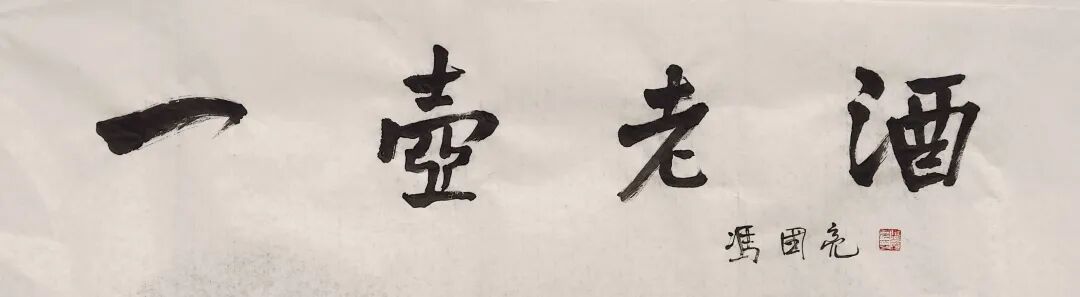 一壺老酒
馮國亮